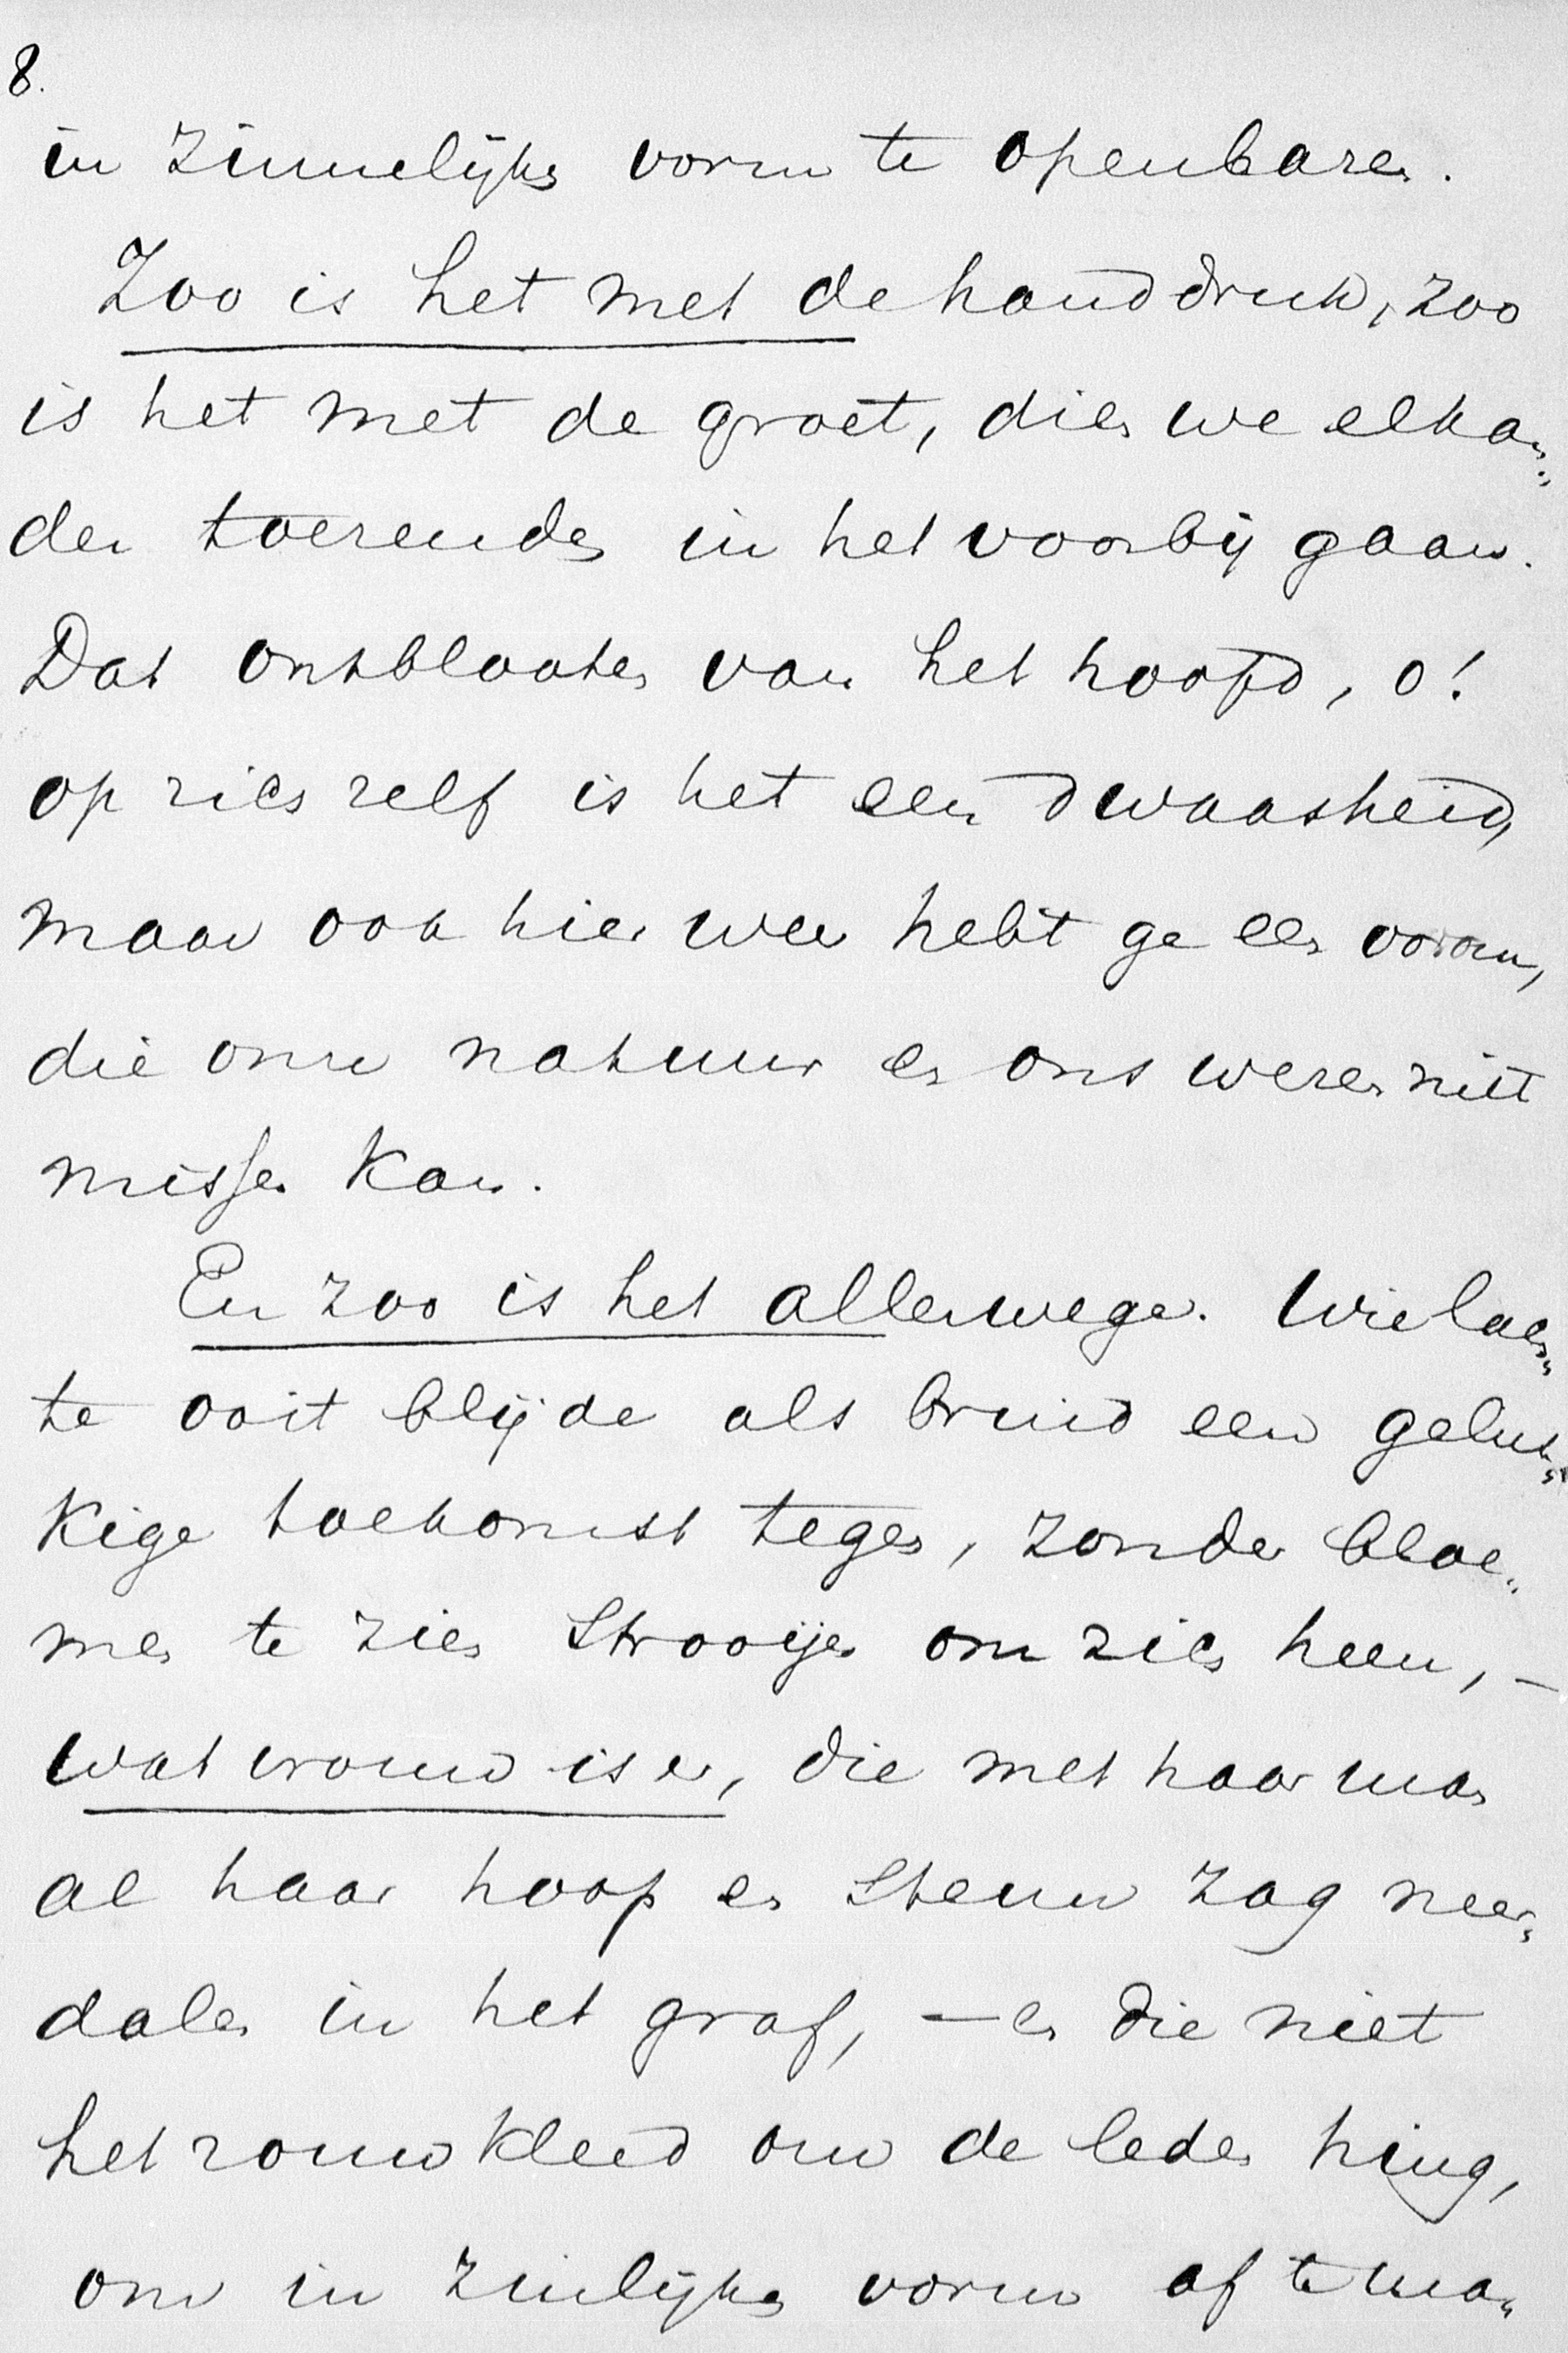 8.
in zinnelijken vorm te openbaren.
Zoo is het met de handdruk, zoo
is het met de groet, dien we elkan„
der toezenden in het voorbij gaan.
Dat ontblooten van het hoofd, o!
op zich zelf is het een dwaasheid,
maar ook hier weer hebt ge een vorm,
die onze natuur en ons wezen niet
missen kan.
En zoo is het allerwege. Wie lach„
te ooit blijde als bruid een geluk„
kige toekomst tegen, zonder bloe„
men te zien strooijen om zich heen, –
wat vrouw is er, die met haar man
al haar hoop en steun zag neer„
dalen in het graf, – en die niet
het rouwkleed om de leden hing,
om in zinlijken vorm af te ma„